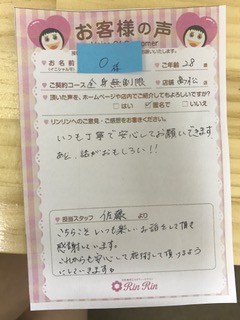 お客様の声
お名前
(イニシャル可)
O
ご年齢 28 歳
ご契約コース 全身無制限
店舗 高松
頂いた声を、ホームページや店内でご紹介してもよろしいですか?
はい ✓匿名で いいえ
リンリンへのご意見・ご感想をお書きください。
いつも丁寧で安心してお願いできます
あと、話がおもしろい!!
担当スタッフ 佐藤 より
こちらこそ いつも楽しいお話をして頂き
感謝しています。
これからも安心して施術して頂けるよう
にしていきます。
Rin Rin